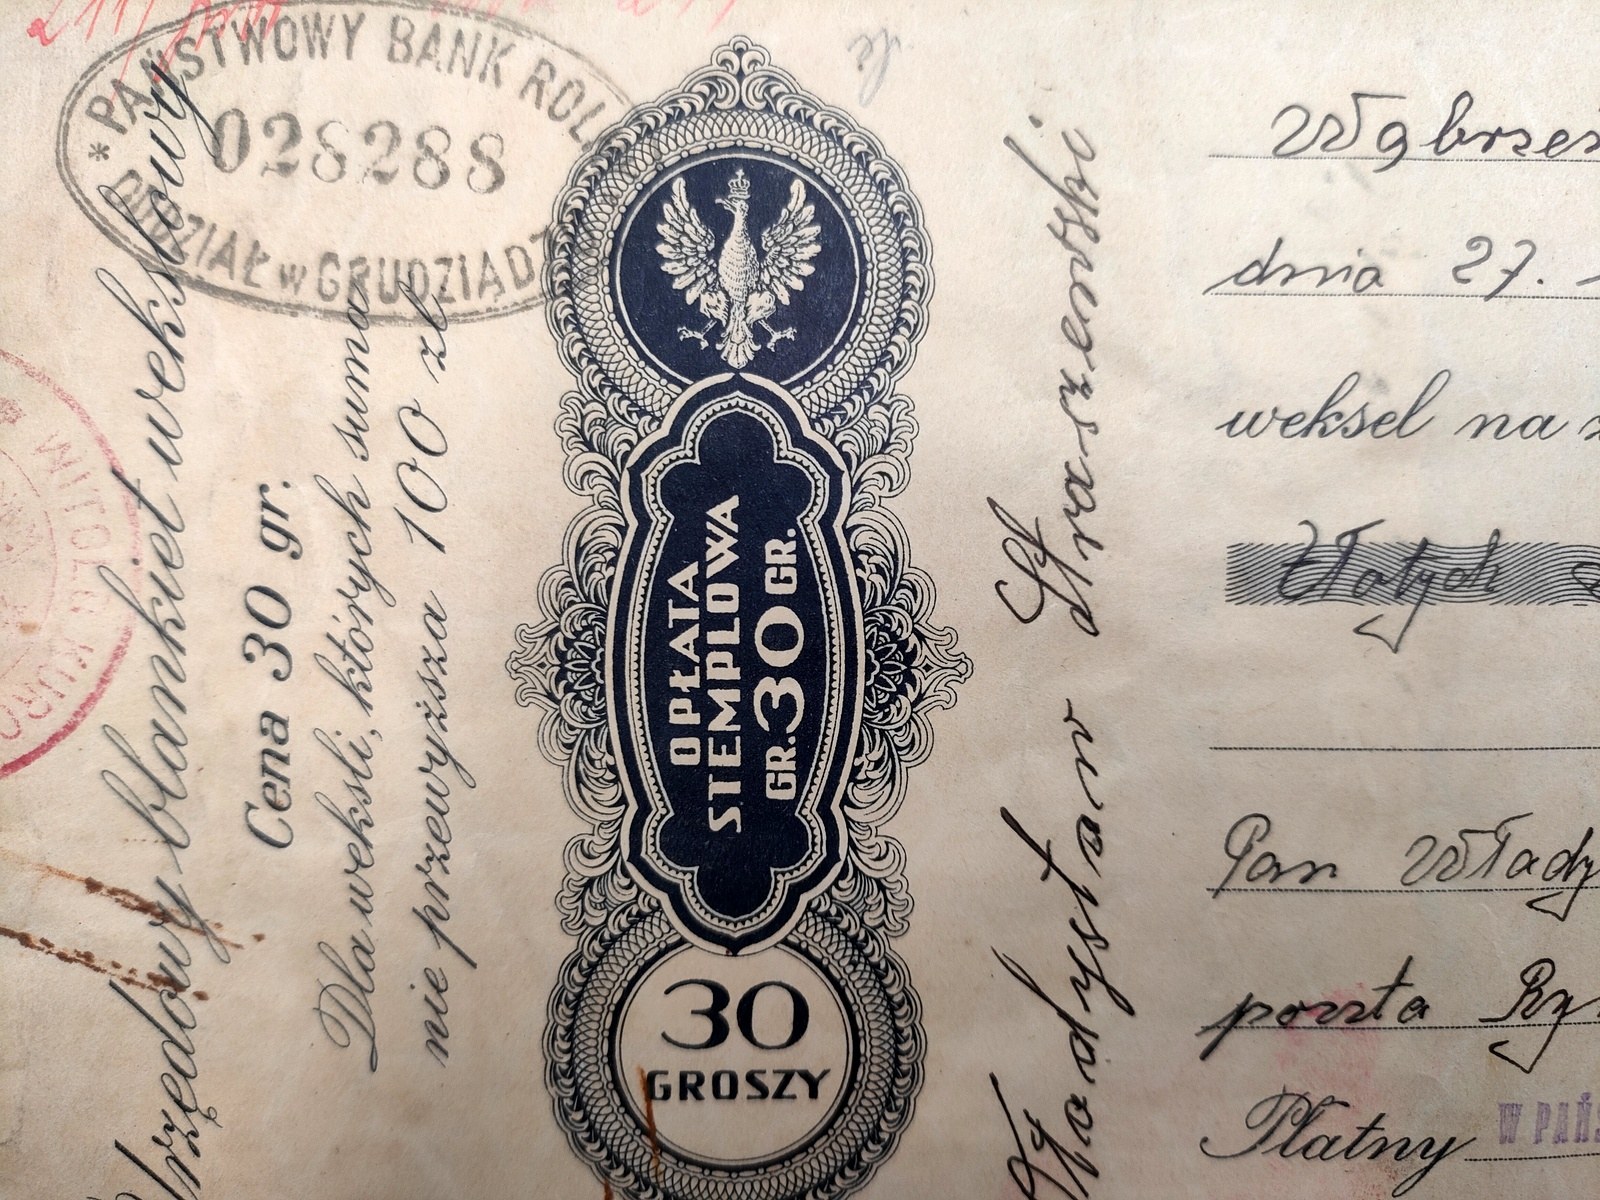 PAŃSTWOWY BANK ROL
028288
ODDZIAŁ w GRUDZIĄDZ
Urzędowy blankiet wekslowy
Cena 30 gr.
Dla weksli, których suma
nie przewyższa 100 zł.
OPŁATA
STEMPLOWA
GR. 30 GR.
30
GROSZY
Władysław Straszewski
Wąbrzeź
dnia 27. -
weksel na z
Złotych
Pan Włady
poczta Ry
Płatny W PAŃS